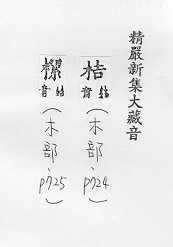 精嚴新集大藏音
桔
結音
(木部、p724)
結音
(木部、p725)